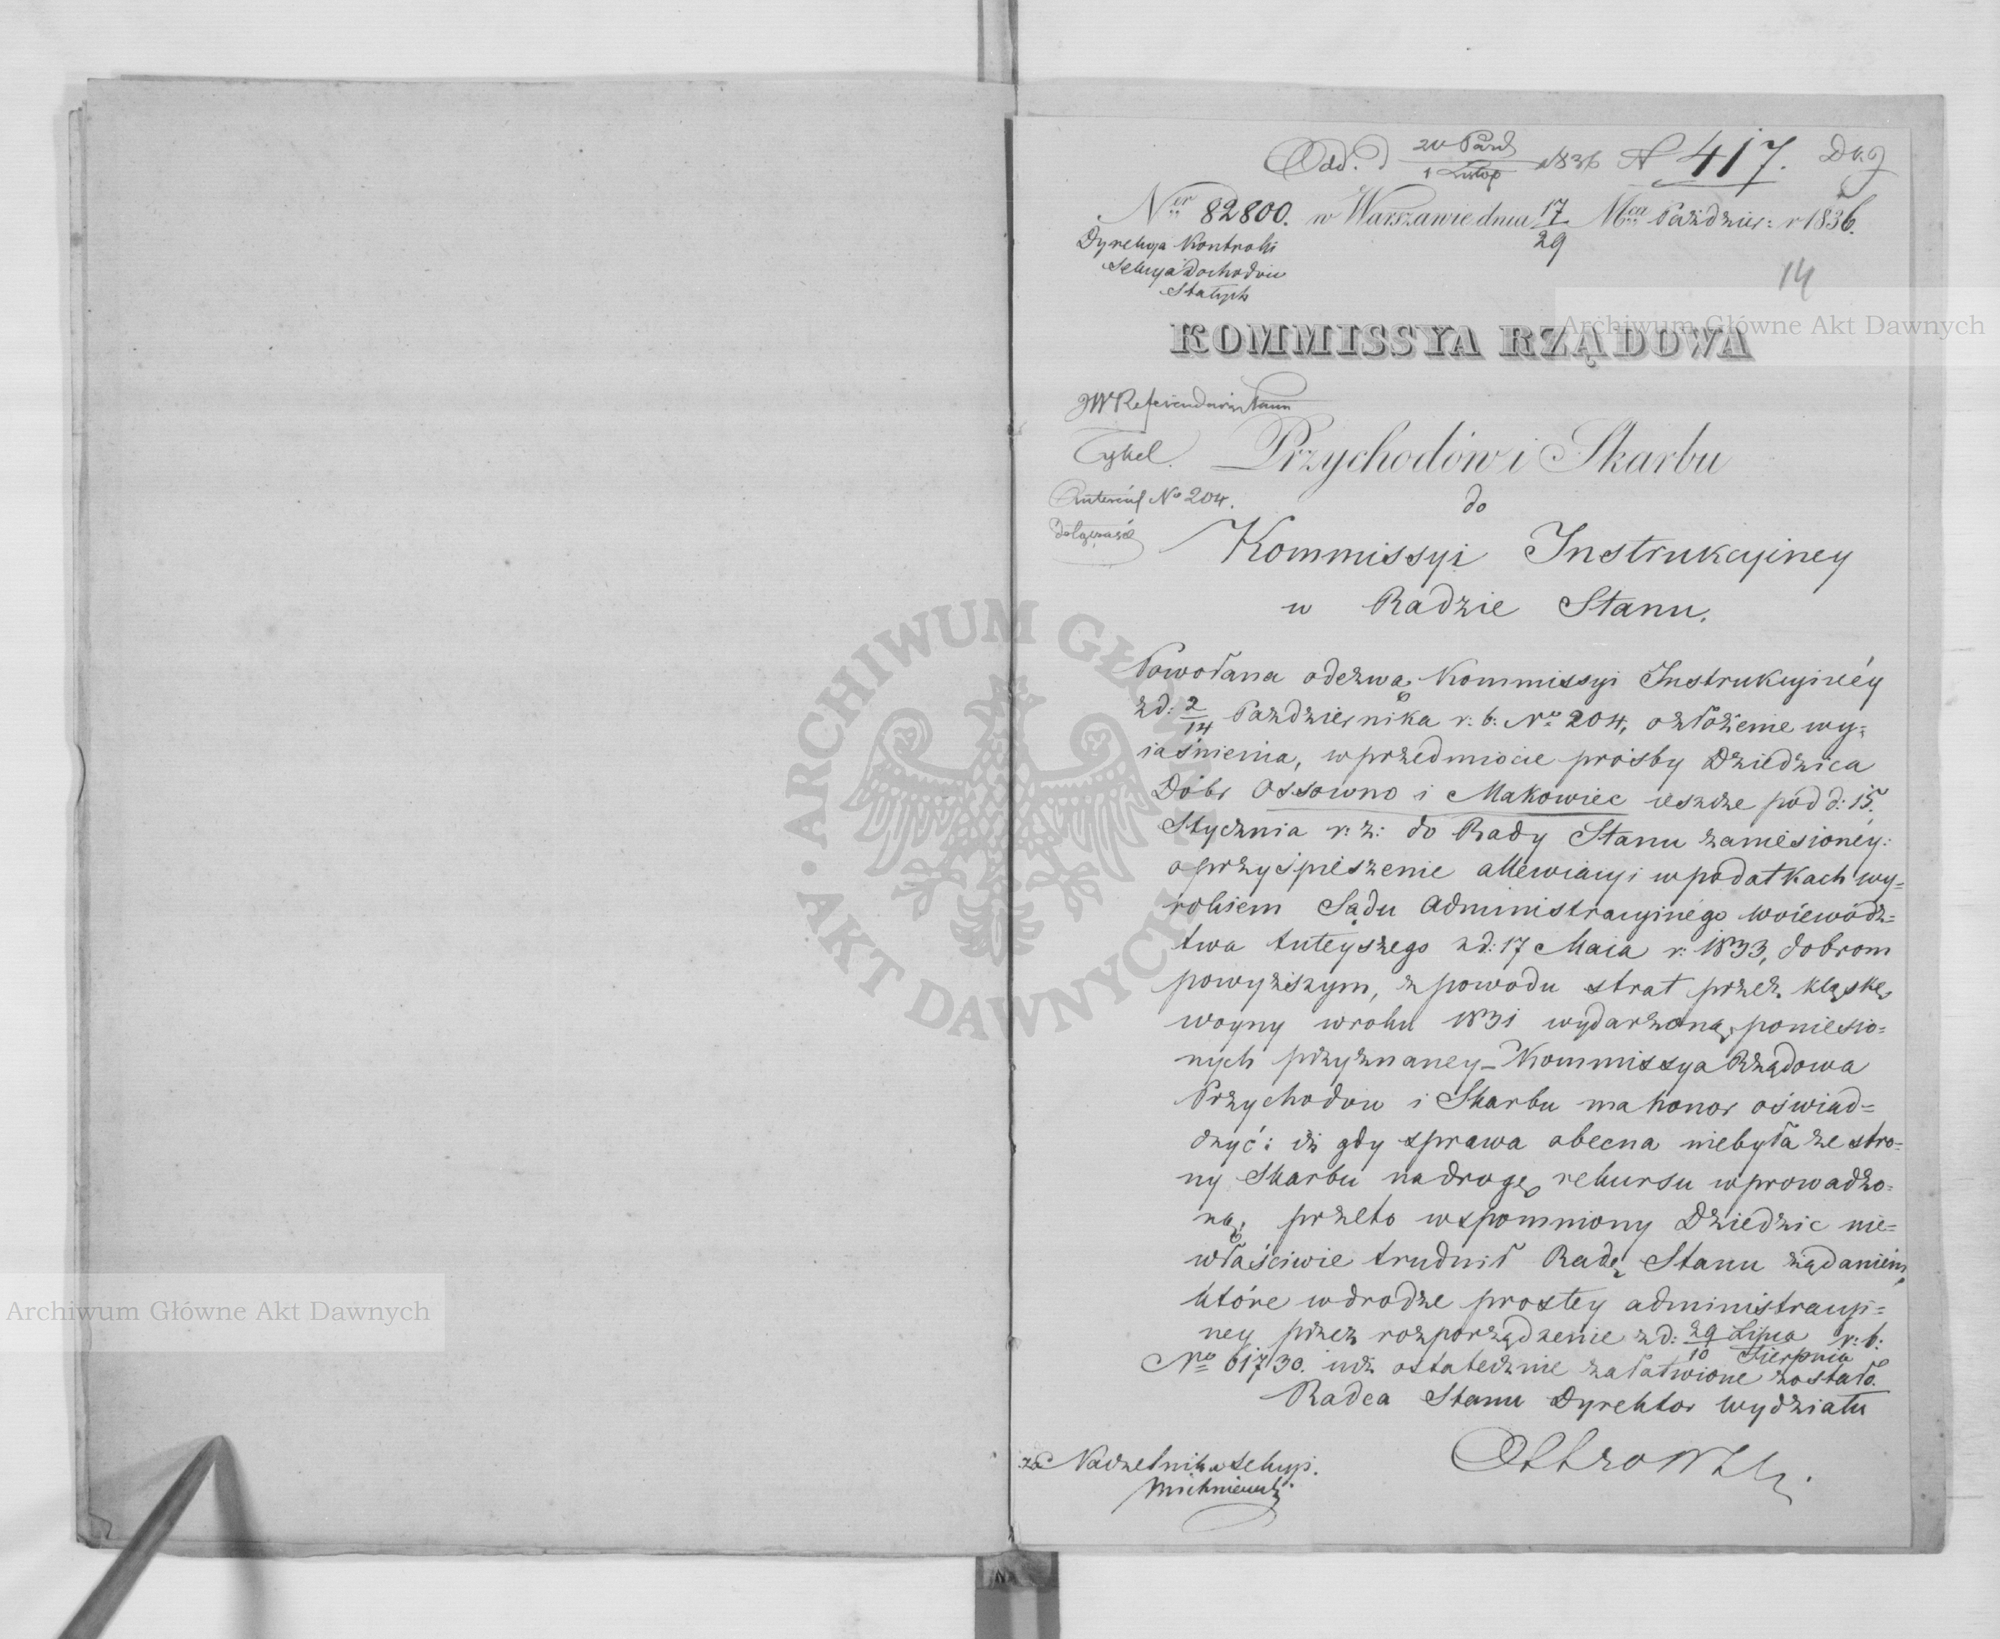 Odd. d 20 Paźd / 1 Listop 1836 N 417.
Ner 82800. w Warszawie dnia 17/29 Mca Paździer: r 1836.
Dyrekcya Kontroli
Sekcya Dochodów
Stałych
14
KOMMISSYA RZĄDOWA
JW Referendarz Stanu
Tykel.
Przychodów i Skarbu
No 204.
do
Kommissyi Instrukcyiney
w Radzie Stanu.
Powołana odezwą Kommissyi Instrukcyinéy
zd: 2/14 Października r: b: No 204, o złożenie wy=
iaśnienia, w przedmiocie prośby Dziedzica
Dóbr Ossowno i Makowiec ieszcze pod d: 15.
Stycznia r: z: do Rady Stanu zaniesionéy:
o przyśpieszenie allewiacyi w podatkach wy=
rokiem Sądu Administracyinégo woiewódz=
twa tuteyszego z d: 17 Maia r: 1833, dobrom
powyższym, z powodu strat przez klęskę
woyny w roku 1831 wydarzoną, poniesio=
nych przyznaney – Kommissya Rządowa
Przychodów i Skarbu ma honor oświad=
czyć: iż gdy sprawa obecna niebyła ze stro=
ny Skarbu na drogę rekursu wprowadzo=
ną, przeto wspomniony Dziedzic nie=
właściwie trudnił Radę Stanu żądaniem,
które w drodze prostey administracyi=
ney przez rozporządzenie z d: 29 Lipca / 10 Sierpnia r: b:
No 61730. iuż ostatecznie załatwione zostało.
Radca Stanu Dyrektor Wydziału
za Naczelnika Sekcyi.
Archiwum Główne Akt Dawnych
Archiwum Główne Akt Dawnych
ARCHIWUM GŁÓWNE AKT DAWNYCH